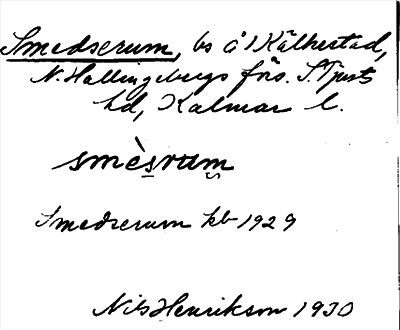 Smedserum, bs å 1 Källvestad,
N. Hallingebergs förs. S. Tjusts
hd, Kalmar l.
smèsrum
Smedserum kb 1929
Nils Henrikson 1930